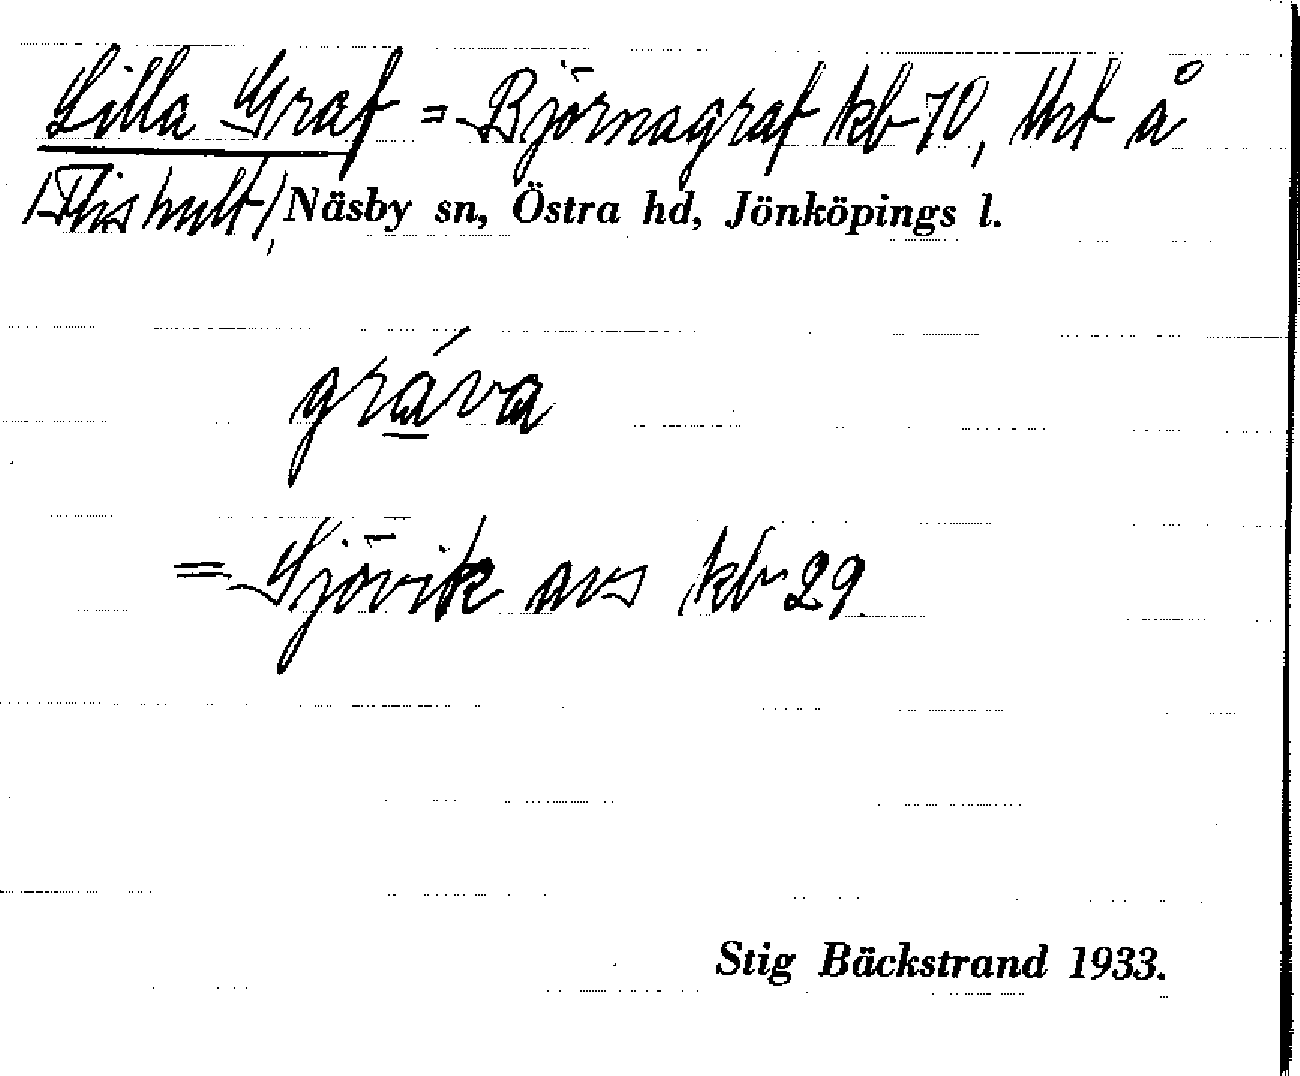 Lilla Graf = Björnagraf kb 70, tht å
/Flishult/, Näsby sn, Östra hd, Jönköpings l.
gráva
= Sjövik avs kb 29.
Stig Bäckstrand 1933.